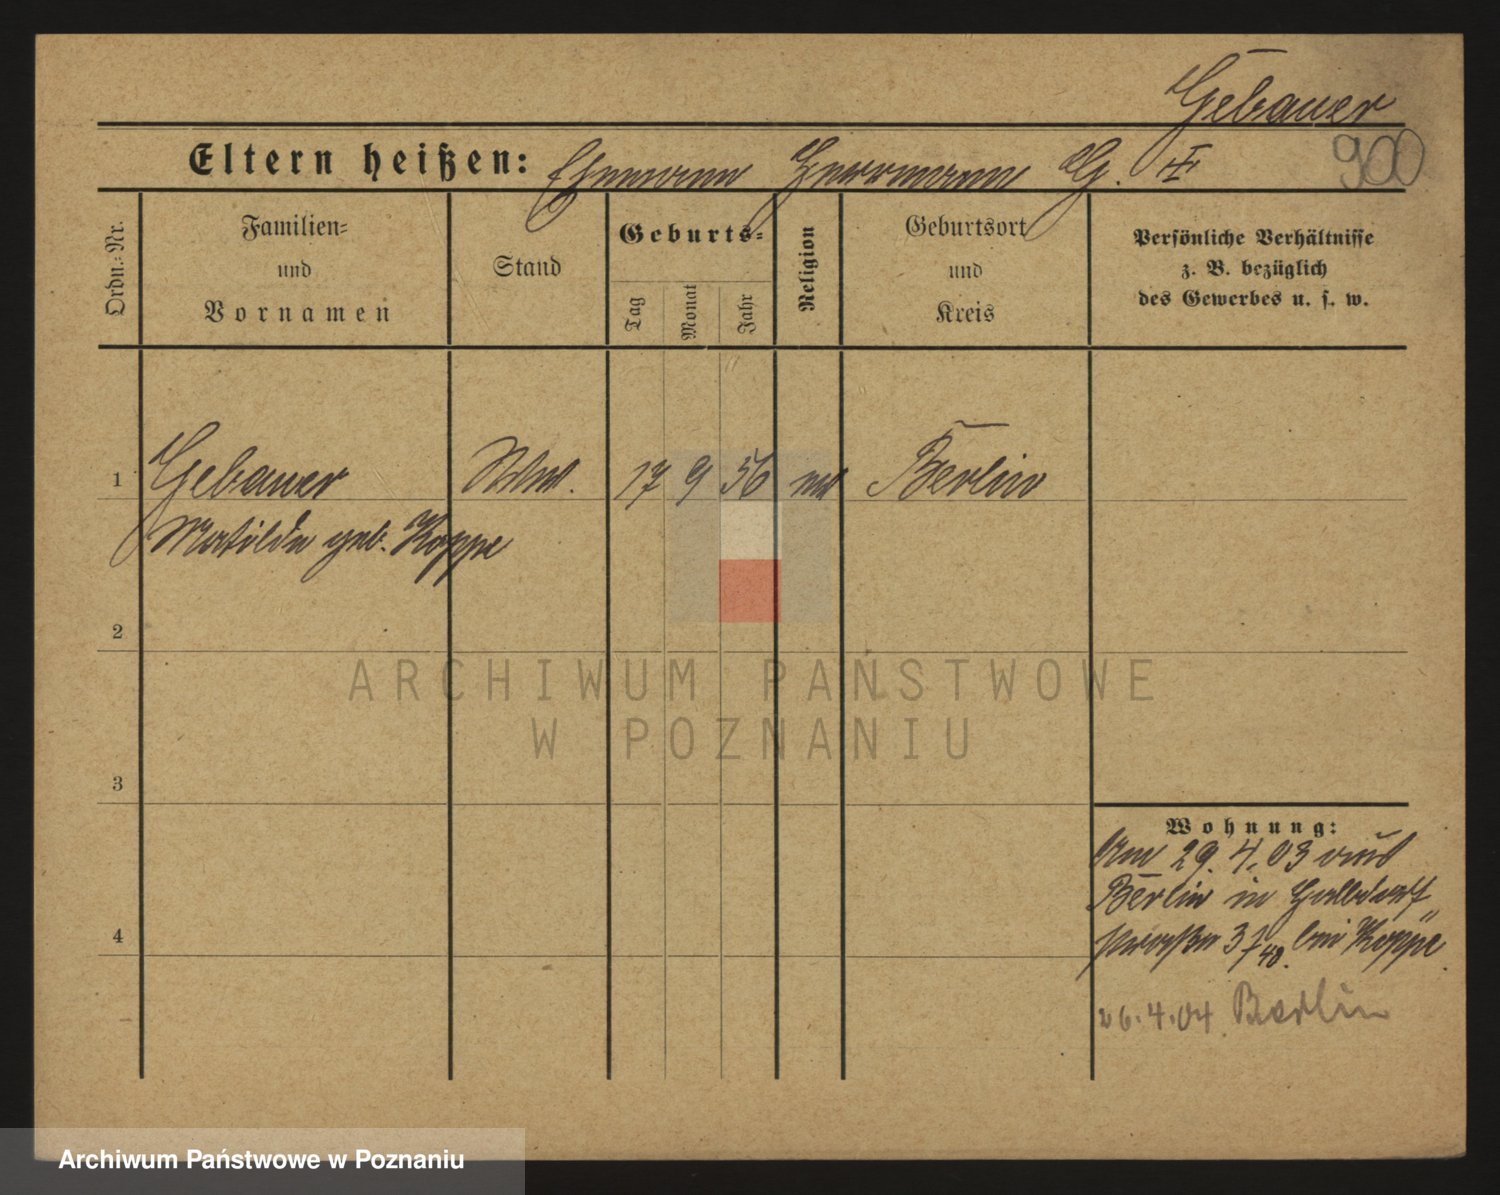 Gebauer
Eltern heißen: Ehemann Herrmann G. 900
Ordn.-Nr.
Familien-
und
Vornamen
Stand
Geburts-
Tag
Monat
Jahr
Religion
Geburtsort
und
Kreis
Persönliche Verhältnisse
z. B. bezüglich
des Gewerbes u. s. w.
1 Gebauer Wwe. 17 9 56 ev Berlin
Mathilde geb. Koppe
2
3
4
Wohnung:
Am 29.4.03 aus
Berlin in Halbdorf
straße 31 bei Koppe
26.4.04 Berlin
ARCHIWUM PAŃSTWOWE
W POZNANIU
Archiwum Państwowe w Poznaniu